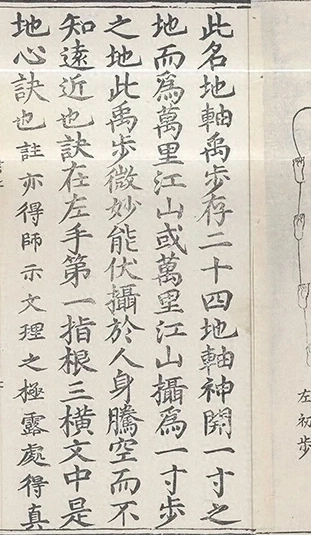 左初步
此名地軸禹步存二十四地軸神開一寸之
地而爲萬里江山或萬里江山攝爲一寸步
之地此禹步微妙能伏攝於人身騰空而不
知遠近也訣在左手第一指根三橫文中是
地心訣也註亦得師示文理之極露處得真